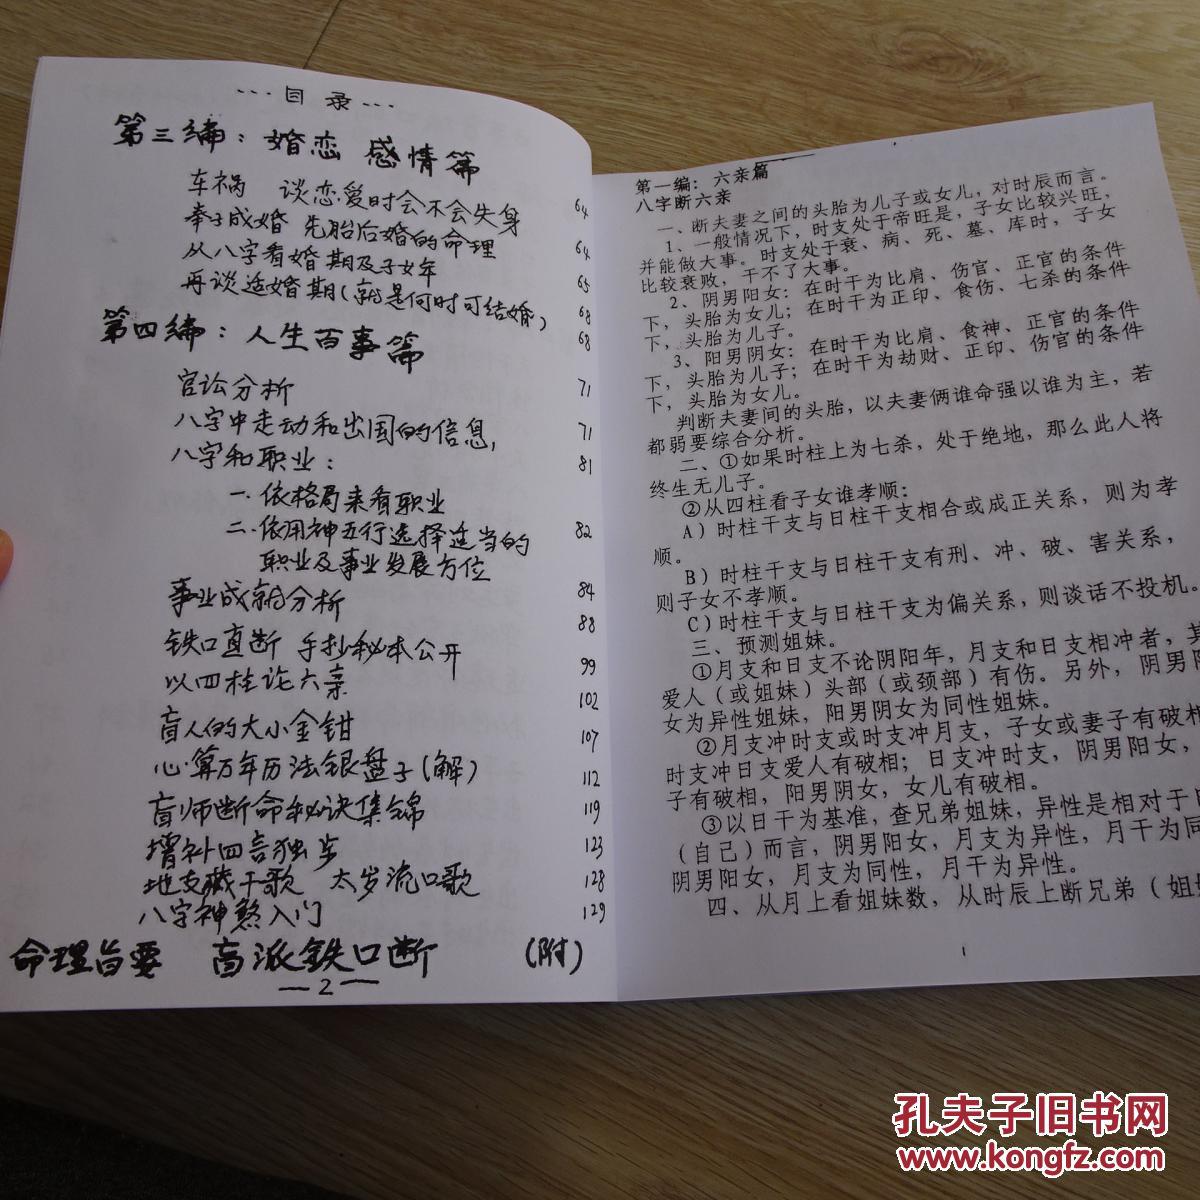 ···目录···
第三编：婚恋 感情篇
车祸 谈恋爱时会不会失身 64
奉子成婚 先胎后婚的命理 64
从八字看婚期及子女年 65
再谈适婚期(就是何时可结婚) 68
第四编：人生百事篇 68
官讼分析 71
八字中走动和出国的信息， 71
八字和职业： 81
一.依格局来看职业
二.依用神五行选择适当的 82
职业及事业发展方位
事业成就分析 84
铁口直断 手抄秘本公开 88
以四柱论六亲 99
盲人的大小金钳 102
心算万年历法银盘子(解) 107
盲师断命秘诀集锦 112
增补四言独步 119
地支藏干歌 太岁流口歌 123
八字神煞入门 128
129
命理旨要 盲派铁口断 (附)
—2—
第一编：六亲篇
八字断六亲
一、断夫妻之间的头胎为儿子或女儿，对时辰而言。
1、一般情况下，时支处于帝旺是，子女比较兴旺，
并能做大事。时支处于衰、病、死、墓、库时，子女
比较衰败，干不了大事。
2、阴男阳女：在时干为比肩、伤官、正官的条件
下，头胎为女儿；在时干为正印、食伤、七杀的条件
下，头胎为儿子。
3、阳男阴女：在时干为比肩、食神、正官的条件
下，头胎为儿子；在时干为劫财、正印、伤官的条件
下，头胎为女儿。
判断夫妻间的头胎，以夫妻俩谁命强以谁为主，若
都弱要综合分析。
二、①如果时柱上为七杀，处于绝地，那么此人将
终生无儿子。
②从四柱看子女谁孝顺：
A）时柱干支与日柱干支相合或成正关系，则为孝
顺。
B）时柱干支与日柱干支有刑、冲、破、害关系，
则子女不孝顺。
C）时柱干支与日柱干支为偏关系，则谈话不投机。
三、预测姐妹。
①月支和日支不论阴阳年，月支和日支相冲者，其
爱人（或姐妹）头部（或颈部）有伤。另外，阴男阳
女为异性姐妹，阳男阴女为同性姐妹。
②月支冲时支或时支冲月支，子女或妻子有破相
时支冲日支爱人有破相；日支冲时支，阴男阳女，
子有破相，阳男阴女，女儿有破相。
③以日干为基准，查兄弟姐妹，异性是相对于日
（自己）而言，阴男阳女，月支为异性，月干为同
阴男阳女，月支为同性，月干为异性。
四、从月上看姐妹数，从时辰上断兄弟（姐妹
1
孔夫子旧书网
www.kongfz.com